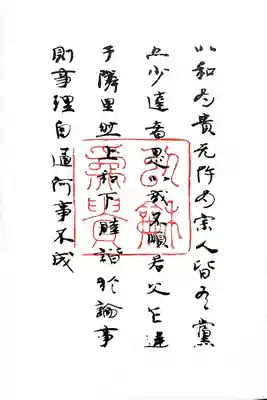 以和為貴無忤為宗人皆有黨
亦少達者是以或不順君父乍違
于隣里然上和下睦諧於論事
則事理自通何事不成
以和
為貴